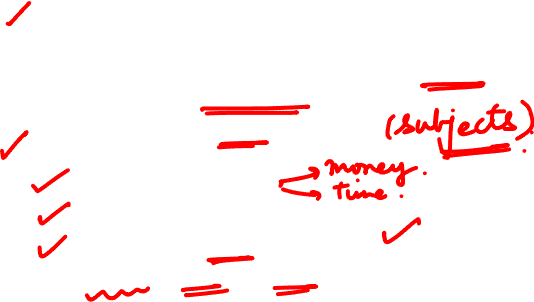 (subjects).
money.
time.